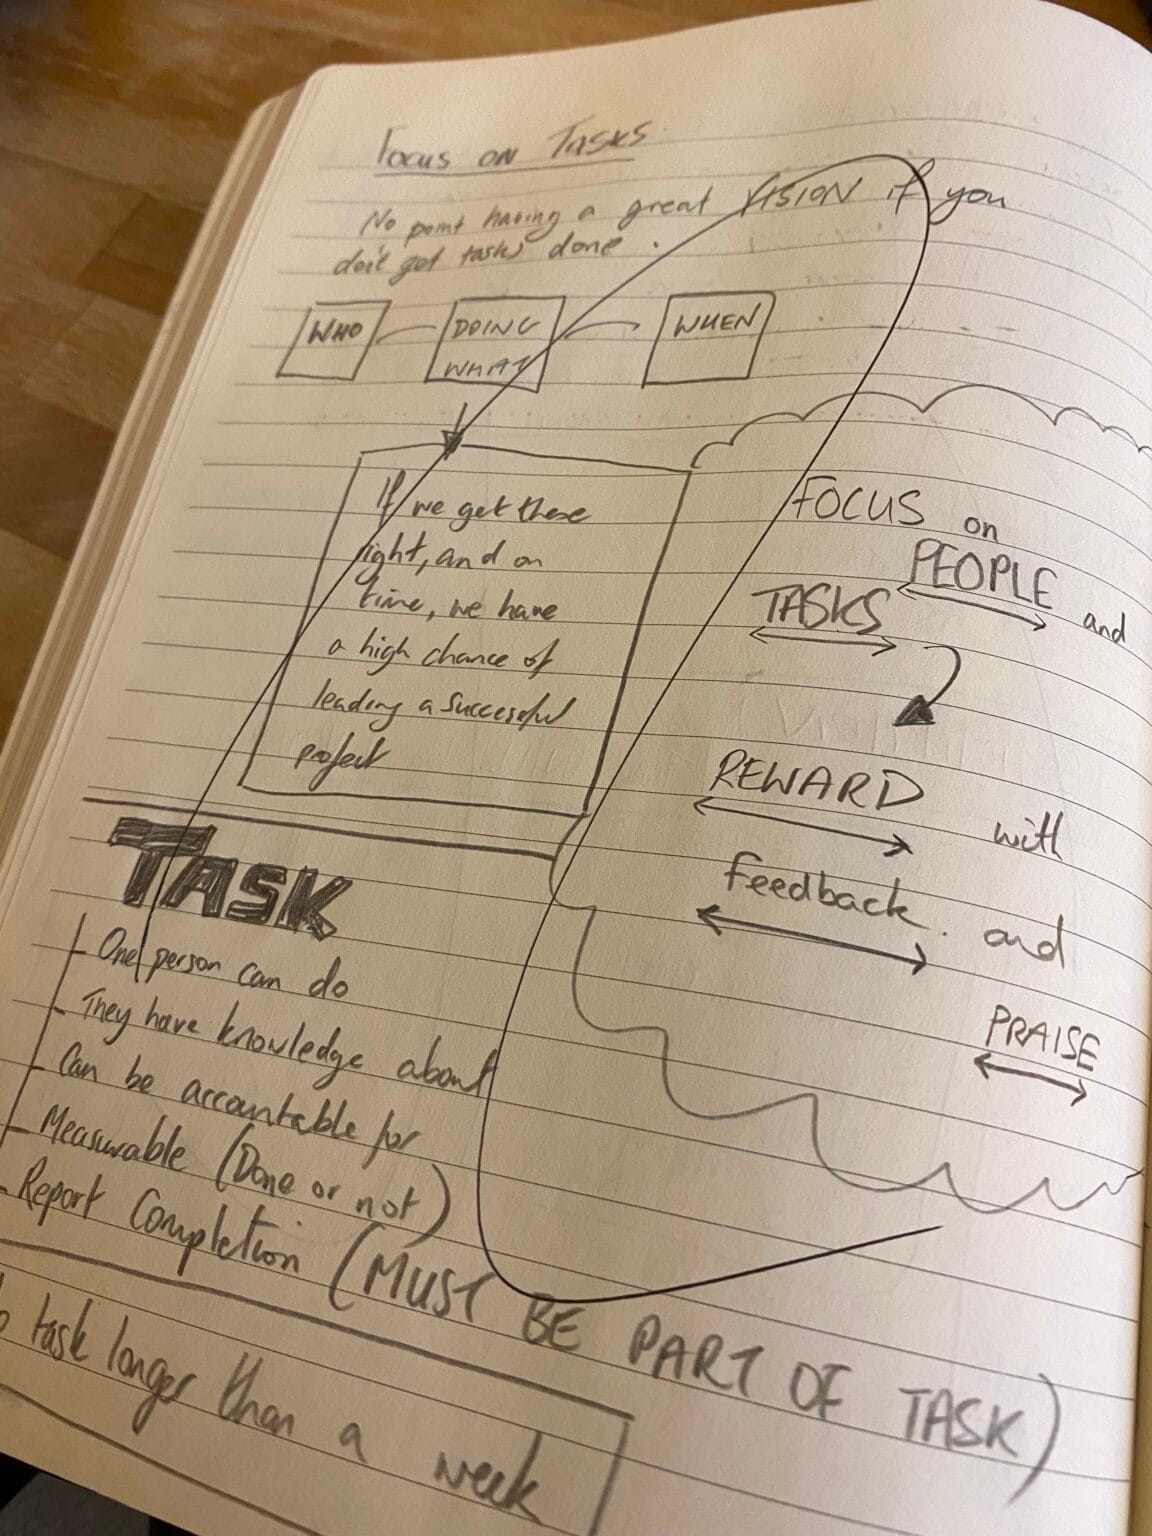 Focus on Tasks
No point having a great VISION if you
don't get tasks done.
WHO
DOING
WHAT
WHEN
If we get these
right, and on
time, we have
a high chance of
leading a successful
project
FOCUS on
PEOPLE and
TASKS
REWARD with
feedback and
PRAISE
TASK
- One person can do
- They have knowledge about
- Can be accountable for
- Measurable (Done or not)
- Report Completion (MUST BE PART OF TASK)
task longer than a week